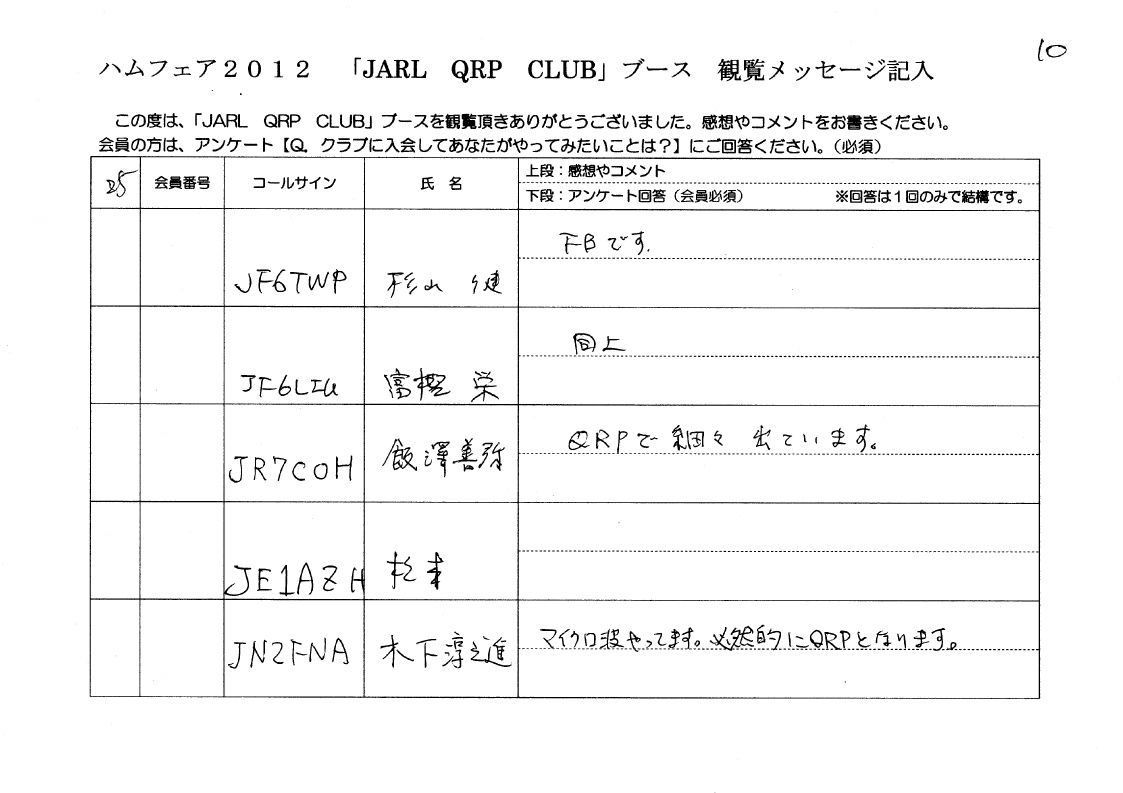 10
ハムフェア2012 「JARL QRP CLUB」ブース 観覧メッセージ記入
この度は、「JARL QRP CLUB」ブースを観覧頂きありがとうございました。感想やコメントをお書きください。
会員の方は、アンケート【Q. クラブに入会してあなたがやってみたいことは?】にご回答ください。(必須)
25 会員番号 コールサイン 氏 名 上段:感想やコメント
下段:アンケート回答(会員必須) ※回答は1回のみで結構です。
FBです.
JF6TWP 杉山 健
同上
JF6LIU 富樫 栄
QRPで細々 出ています。
JR7COH 飯澤善弥
JE1AZH 杉本
マイクロ波やってます。必然的にQRPとなります。
JN2FNA 木下淳之進